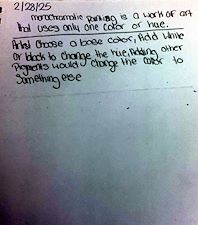 2/28/25
monochromatic painting is a work of art
that uses only one color or hue.
Artist choose a base color, Add while
Or black to change the hue, Adding other
Pigments would change the color to
Something else